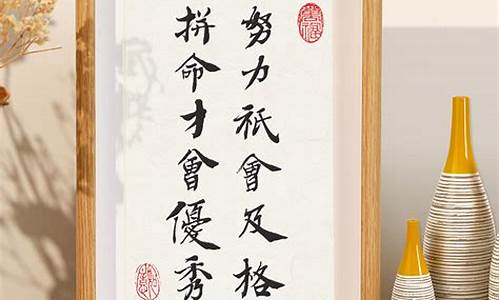 努力祇會及格
拼命才會優秀